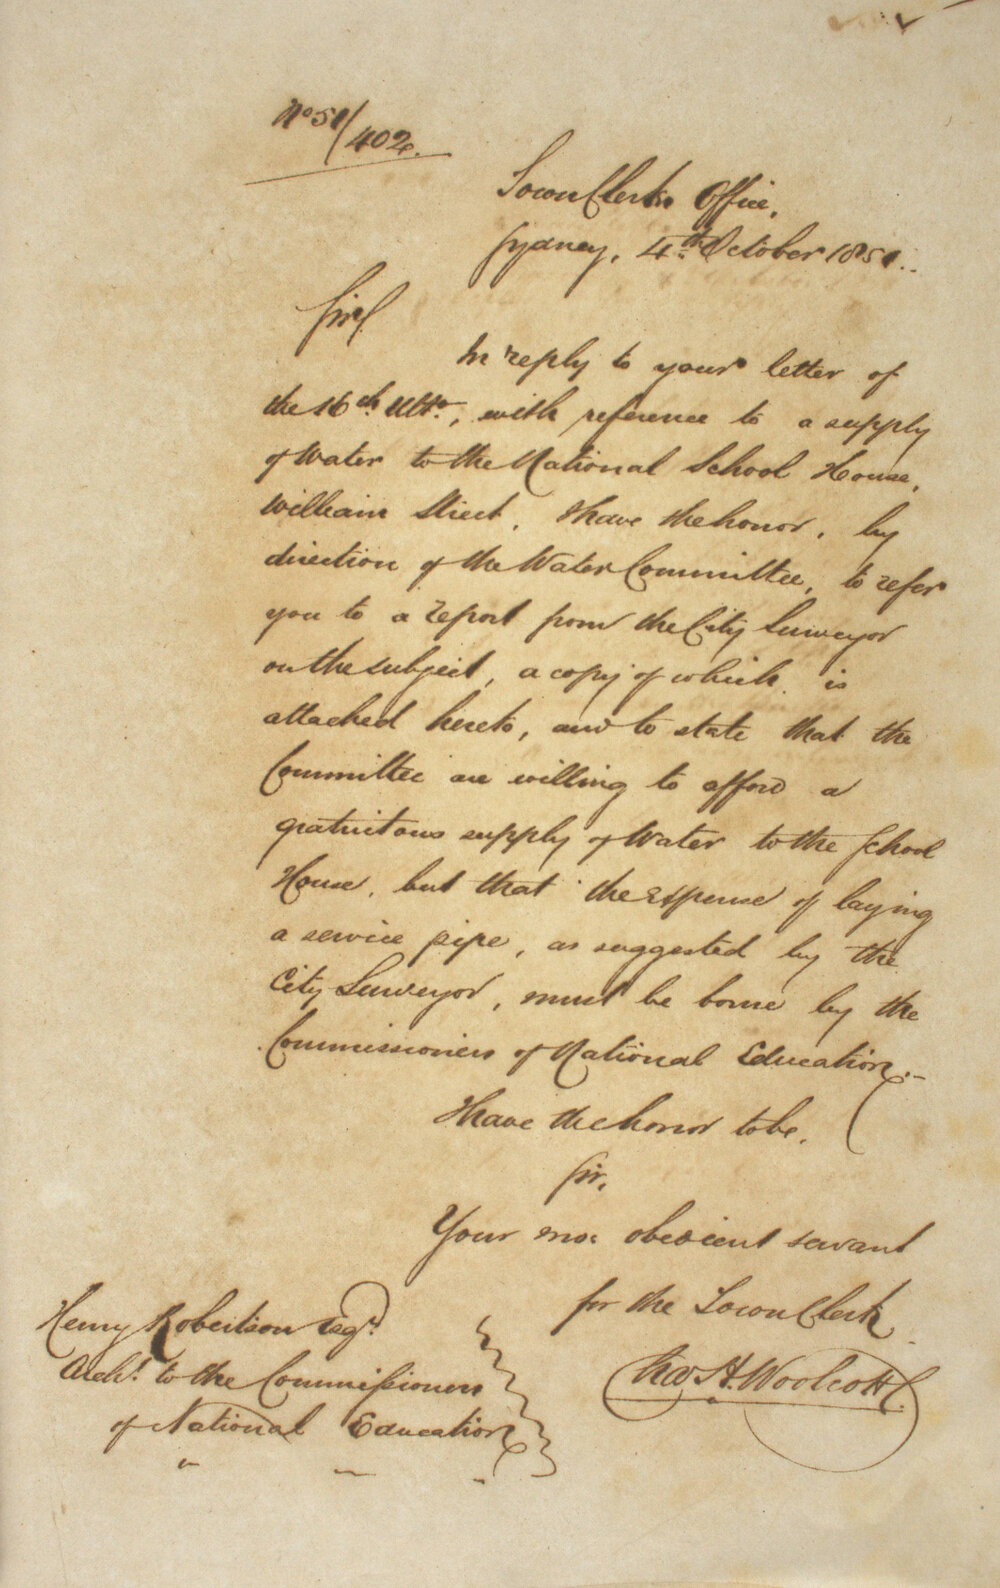 No 51/402.
Town Clerk's Office,
Sydney, 4th. October 1851.
Sir,
In reply to your letter of
the 16th. Ulto., with reference to a supply
of Water to the National School House,
William Street, I have the honor, by
direction of the Water Committee, to refer
you to a report from the City Surveyor
on the subject, a copy of which is
attached hereto, and to state that the
Committee are willing to afford a
gratuitous supply of Water to the School
House, but that the expense of laying
a service pipe, as suggested by the
City Surveyor, must be borne by the
Commissioners of National Education.
I have the honor to be,
Sir,
Your mo: obedient servant
for the Town Clerk
Chas H. Woolcott
Henry Robertson Esqr.
Archt. to the Commissioners
of National Education